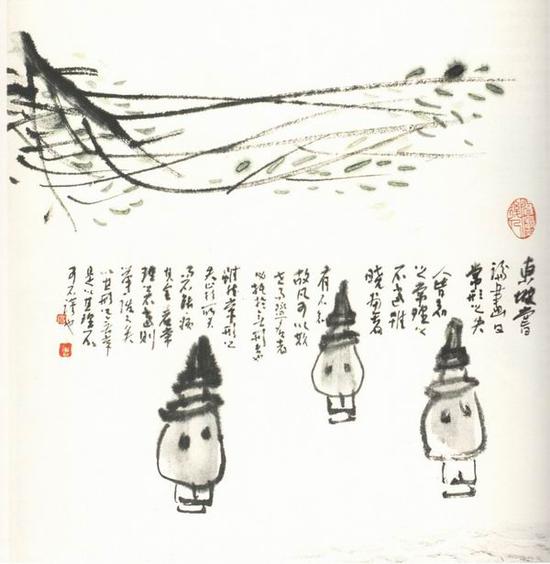 東坡嘗
論畫曰
常形之失
人皆知
之常理之
不當雖
曉畫者
有不知
故凡可以欺
世而取名者
必托於無常形者也
雖然常形之
失止於所失
而不能病
其全若常
理之不當則
舉廢之矣
以其形之無常
是以其理不
可不謹也